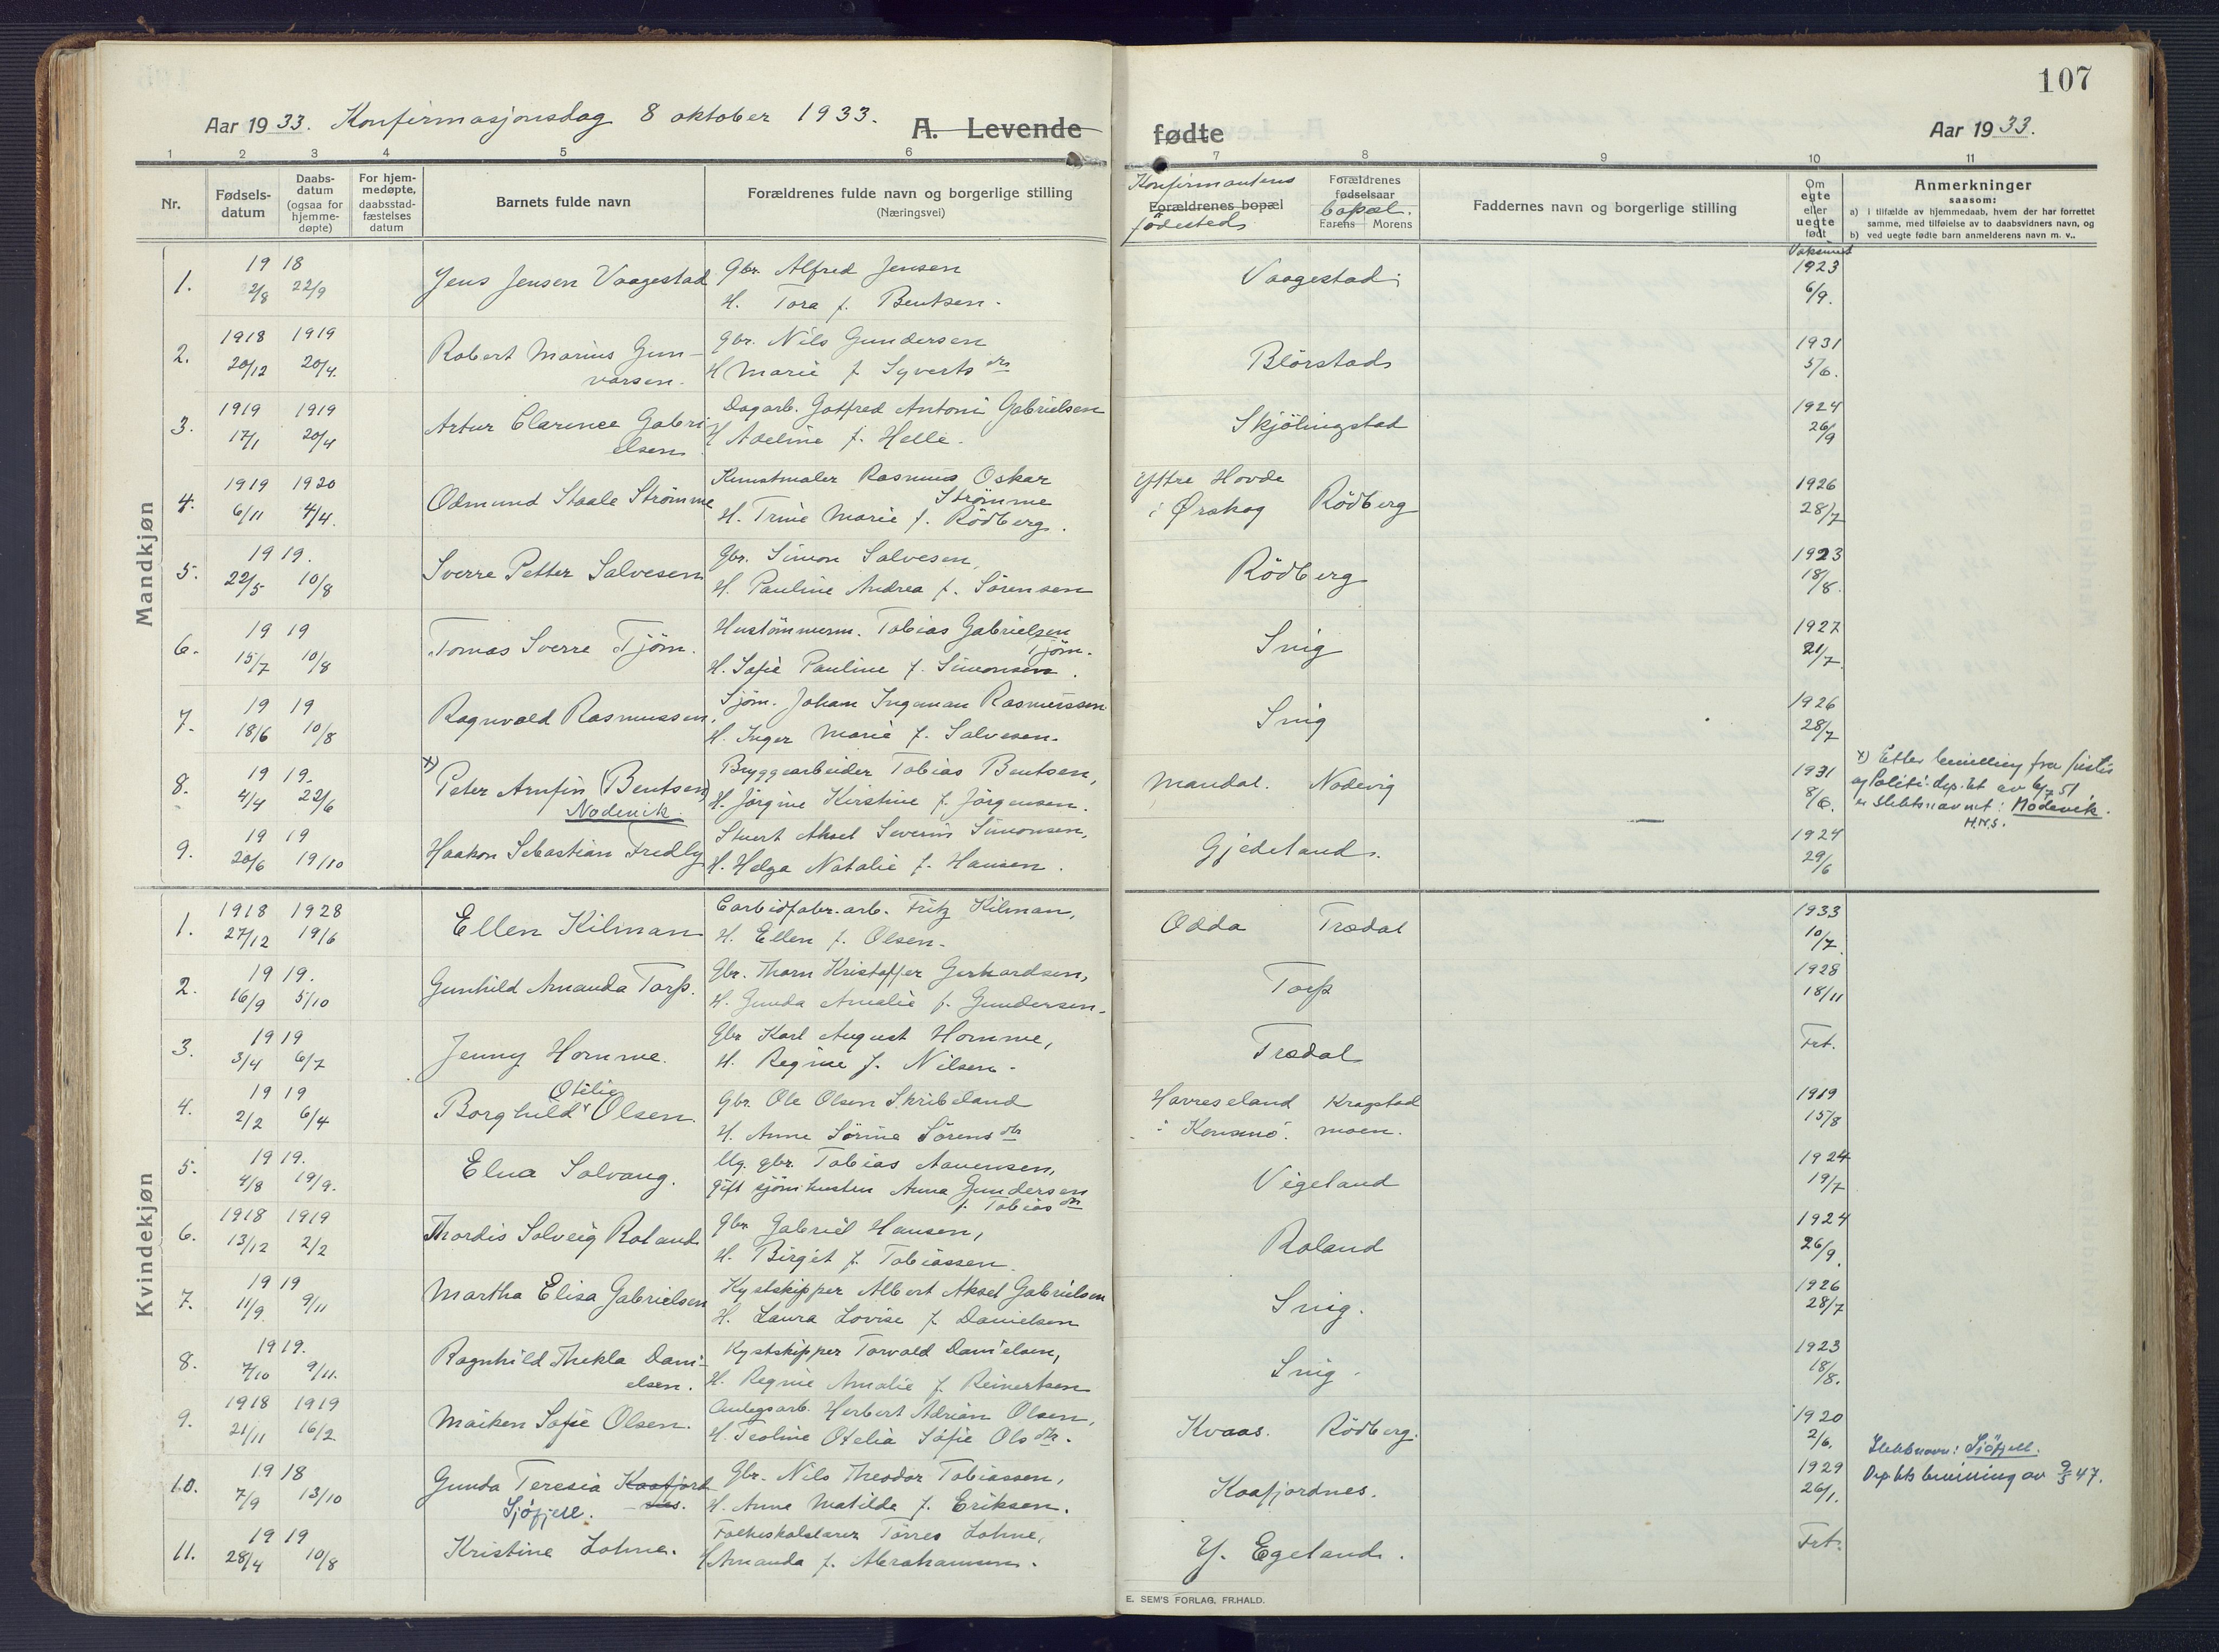 107
Aar 1933. Konfirmasjonsdag 8 oktober 1933. A. Levende fødte Aar 1933.
1 2 3 4 5 6 7 8 9 10 11
Nr.
Fødsels-
datum
Daabs-
datum
(ogsaa for
hjemme-
døpte)
For hjem-
medøpte,
daabsstad-
fæstelses
datum
Barnets fulde navn
Forældrenes fulde navn og borgerlige stilling
(Næringsvei)
Konfirmantens
Forældrenes bopæl
födested
Forældrenes
fødselsaar
bopæl.
Farens Morens
Faddernes navn og borgerlige stilling
Om
egte
eller
uegte
født
Vaksinert
Anmerkninger
saasom:
a) i tilfælde av hjemmedaab, hvem der har forrettet
samme, med tilføielse av to daabsvidners navn, og
b) ved uegte fødte barn anmelderens navn m. v..
Mandkjøn
1. 1918 2/8 22/9 Jens Jensen Vaagestad
Gbr. Alfred Jensen
H. Tora f. Bentsen.
Vaagestad 1923 6/9.
2. 1918 20/12 1919 20/4. Robert Marius Gun-
varsen.
Gbr. Nils Gundersen
H Marie f. Syvertsdtr
Blörstad 1931 5/6.
3. 1919 17/1 1919 20/4 Artur Clarence Gabri-
elsen
Dagarb. Gotfred Antoni Gabrielsen
H Adeline f. Helle.
Skjölingstad 1924 26/9
4. 1919 6/11 1920 4/4. Odmund Staale Strömme
Kunstmaler Rasmus Oskar
Strömme
H. Trine Marie f. Rödberg.
Yttre Hovde
i Ørskog Rödberg 1926 28/7
5. 1919. 22/5 10/8 Sverre Petter Salvesen
Gbr. Simon Salvesen,
H. Pauline Andrea f. Sörensen
Rödberg 1923 18/8.
6. 1919 15/7 10/8 Tomas Sverre Tjöm.
Hustömmerm. Tobias Gabrielsen
Tjöm.
H. Sofie Pauline f. Simonsen.
Snig 1927 21/7.
7. 1919 18/6 10/8 Ragnvald Rasmussen.
Sjöm. Johan Ingeman Rasmussen
H. Inger Marie f. Salvesen.
Snig 1926 28/7
8. 1919. 4/4 22/6 x) Peter Arnfin (Bentsen)
Nodevik.
Bryggearbeider Tobias Bentsen,
H. Jörgine Kirstine f. Jörgensen.
Mandal. Nodevig 1931 8/6.
x) Etter bevilling fra Justis
og Politi-dep.tet av 6/7 51
er slektsnavnet: Nodevik.
H.N.S.
9. 1919 20/6 19/10 Haakon Sebastian Fredly
Stuert Aksel Severin Simonsen,
H. Helga Natalie f. Hansen.
Gjedeland. 1924 29/6
Kvindekjøn
1. 1918 27/12 1928 19/6 Ellen Kilman
Carbidfabr.arb. Fritz Kilman,
H. Ellen f. Olsen.
Odda Trædal 1933 10/7.
2. 1919. 16/9 5/10 Gunhild Amanda Torp.
Gbr. Thorn Kristoffer Gerhardsen,
H. Gunda Amalie f. Gundersen.
Torp 1928 18/11
3. 1919 3/4 6/7 Jenny Homme.
Gbr Karl August Homme,
H. Regine f. Nilsen.
Trædal Frt.
4. 1919 2/2 6/4 Borghild Otilie Olsen.
Gbr. Ole Olsen Skribeland
H. Anne Sörine Sörensdtr
Havreseland
i Konsmo. Kragstad
moen. 1919 15/8
5. 1919. 4/8 19/9. Elna Solvang.
Ug. gbr. Tobias Aanensen,
gift sjömhustru Anna Gundersen
f. Tobiasdtr
Vigeland 1924 19/7
6. 1918 13/12 1919 2/2 Thordis Solveig Roland
Gbr Gabriel Hansen,
H. Birgit f. Tobiassen.
Roland 1924 26/9.
7. 1919 11/9. 9/11 Martha Elisa Gabrielsen
Kystskipper Albert Aksel Gabrielsen
H. Laura Lovise f. Danielsen
Snig. 1926 28/7
8. 1919. 7/10 9/11. Ragnhild Thekla Dani-
elsen.
Kystskipper Torvald Danielsen,
H. Regine Amalie f. Reinertsen
Snig. 1923 18/8.
9. 1918 21/11 1919 16/2 Maiken Sofie Olsen.
Anlegsarb. Herbert Adrian Olsen,
H. Teoline Otelia Sofie Olsdtr.
Kvaas. Rödberg. 1920 2/6.
10. 1918 7/9 13/10 Gunda Teresia Kaafjord
nes.
Sjöfjell.
Gbr. Nils Theodor Tobiassen,
H. Anne Matilde f. Eriksen.
Kaafjordnes. 1929 26/1.
Slektsnavn: Sjöfjell.
Dep.tets bevilling av 9/5 47.
11. 1919 28/4 10/8 Kristine Lohne.
Folkeskolelærer Törres Lohne,
H Amanda f. Abrahamsen.
Y. Egeland. Frt.
E. SEM'S FORLAG, FR.HALD.